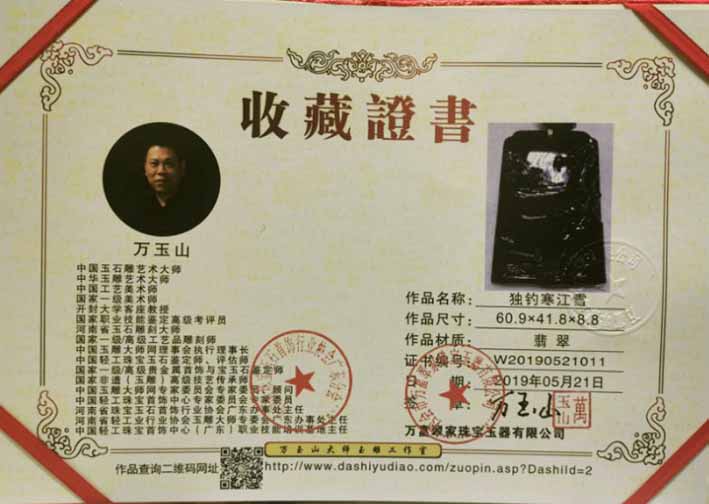 收藏證書
万玉山
中国玉石雕艺术大师
中华玉雕艺术大师
中国工艺美术师
国家一级美术师
开封大学客座教授
国家职业技能鉴定高级考评员
河南省玉石雕刻大师
国家一级/高级工艺品雕刻师
中国玉雕大师网理事会执行理事长
中国轻工珠宝玉石鉴定师、评估师
国家一级/高级贵金属首饰与宝玉石鉴定师
国家非遗（玉雕）专高级技艺传承师
中国玉雕大师网专家委员会专家委员、顾问
中国轻工珠宝首饰中心专家委员会专家
河南省珠宝玉石首饰行业协会广东办事处主任
河南省工业行业协会玉雕大师专委会广东办事处主任
中国轻工珠宝首饰中心（广东）职业技能培训基地主任
作品名称： 独钓寒江雪
作品尺寸： 60.9×41.8×8.8
作品材质： 翡翠
证书编号： W20190521011
日 期： 2019年05月21日
章： 万玉山
万富翠家珠宝玉器有限公司
万玉山大师玉雕工作室
作品查询二维码网址
http://www.dashiyudiao.com/zuopin.asp?Dashild=2